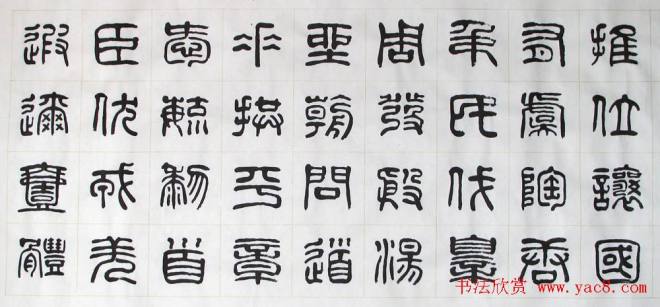 推位讓國
有虞陶唐
弔民伐辠
周發殷湯
坐朝問道
垂拱平章
愛毓黎首
臣伏戎羌
遐邇壹體
书法欣赏 www.yac8.com